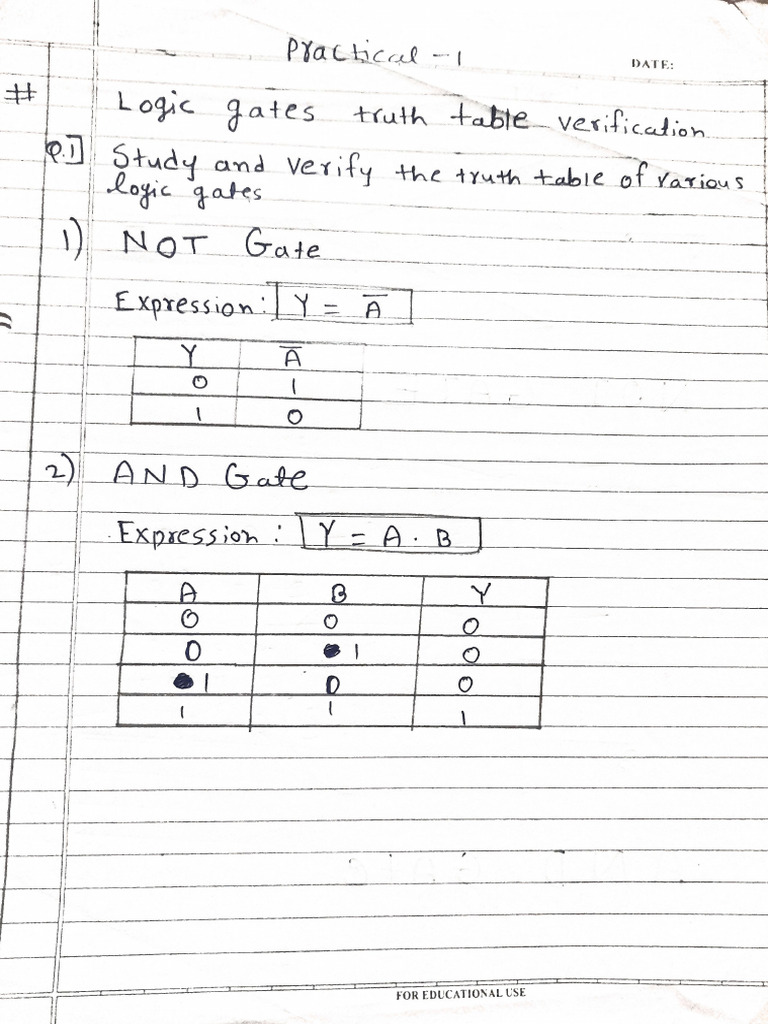 Practical - 1
DATE:
# Logic gates truth table verification
Q.1] Study and verify the truth table of various
logic gates
1) NOT Gate
Expression: Y = A̅
Y A̅
0 1
1 0
2) AND Gate
Expression : Y = A . B
A B Y
0 0 0
0 1 0
1 0 0
1 1 1
FOR EDUCATIONAL USE